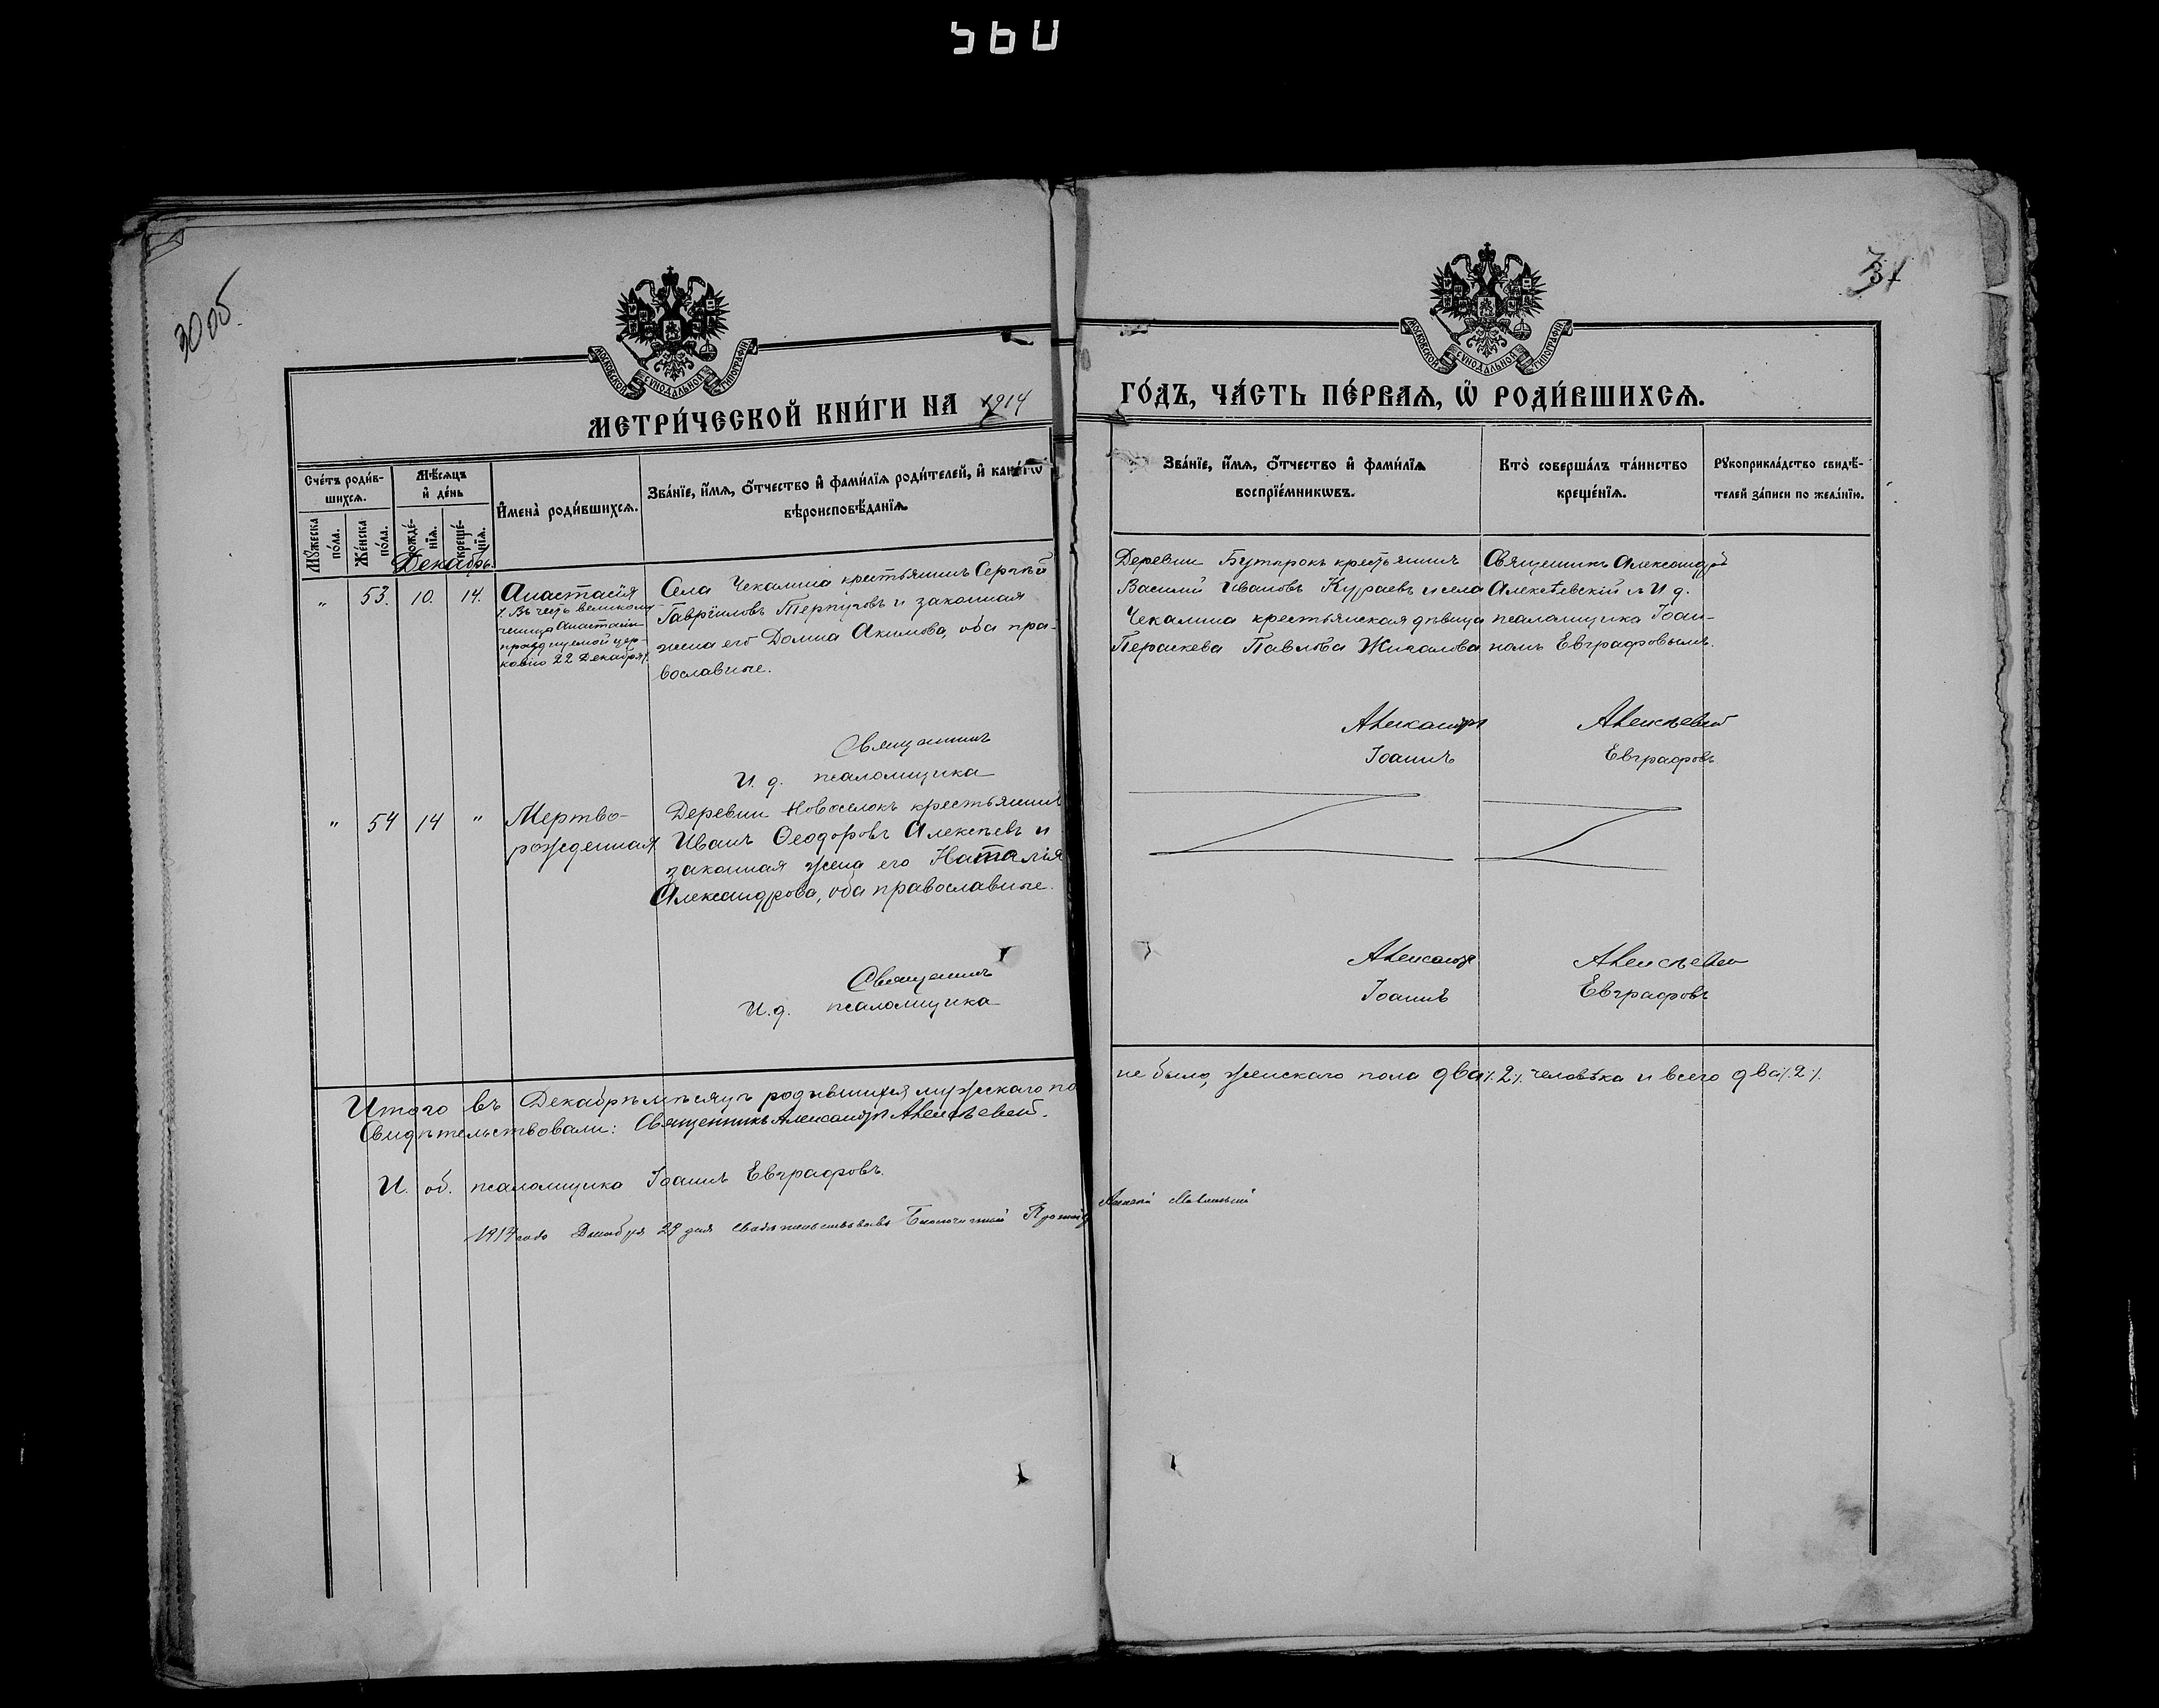 560
30 об.
31
МОСКОВСКОЙ СѴНОДАЛЬНОЙ ТИПОГРАФІИ
МОСКОВСКОЙ СѴНОДАЛЬНОЙ ТИПОГРАФІИ
МЕТРИ́ЧЕСКОЙ КНИ́ГИ НА 1914
ГО́ДЪ, ЧА́СТЬ ПЕ́РВАѦ, Ѽ РОДИ́ВШИХСѦ.
Сче́тъ роди́в-
шихсѧ.
Мѣ́сѧцъ
и҆ де́нь
Мꙋ́жеска
по́ла.
Же́нска
по́ла.
рожде́-
нїѧ.
креще́-
нїѧ.
И҆мена̀ роди́вшихсѧ.
Зва́нїе, и҆́мѧ, ѻ҆́тчество и҆ фами́лїѧ роди́телей, и҆ како́гѡ
вѣроисповѣ́данїѧ.
Зва́нїе, и҆́мѧ, ѻ҆́тчество и҆ фами́лїѧ
воспрїе́мникѡвъ.
Кто̀ соверша́лъ та́инство
креще́нїѧ.
Рꙋкоприкла́дство свидѣ́-
телей за́писи по жела́нїю.
Декабрь
" 53. 10. 14.
Анастасія
/. Въ честь великому-
ченицы Анастасіи
празднуемой цер-
ковію 22 Декабря/.
Села Чекалина крестьянинъ Сергѣй
Гавріиловъ Терпуговъ и законная
жена его Домна Акимова, оба пра-
вославные.
Деревни крестьянинъ
Василій Ивановъ Кураевъ и села
Чекалина крестьянская дѣвица
Параскева Павлова Жигалова
Священникъ Александръ
Алексѣевскій съ И. д.
псаломщика Іоан-
номъ Евграфовымъ.
Священникъ Александръ Алексѣевскій
И. д. псаломщика Іоаннъ Евграфовъ
" 54 14 "
Мертво-
рожденная
Деревни Новоселокъ крестьянинъ
Иванъ Ѳеодоровъ Алексѣевъ и
законная жена его Наталія
Александрова, оба православные.
Священникъ Александръ Алексѣевскій
И. д. псаломщика Іоаннъ Евграфовъ
Итого въ Декабрѣ мѣсяцѣ родившихся мужескаго по не было, женскаго пола два /.2./. человѣка и всего два /.2./.
Свидѣтельствовали: Священникъ Александръ Алексѣевскій.
И. об. псаломщика Іоаннъ Евграфовъ.
1914 года Декабря 29 дня свидѣтельствовалъ Благочинный Алексѣй